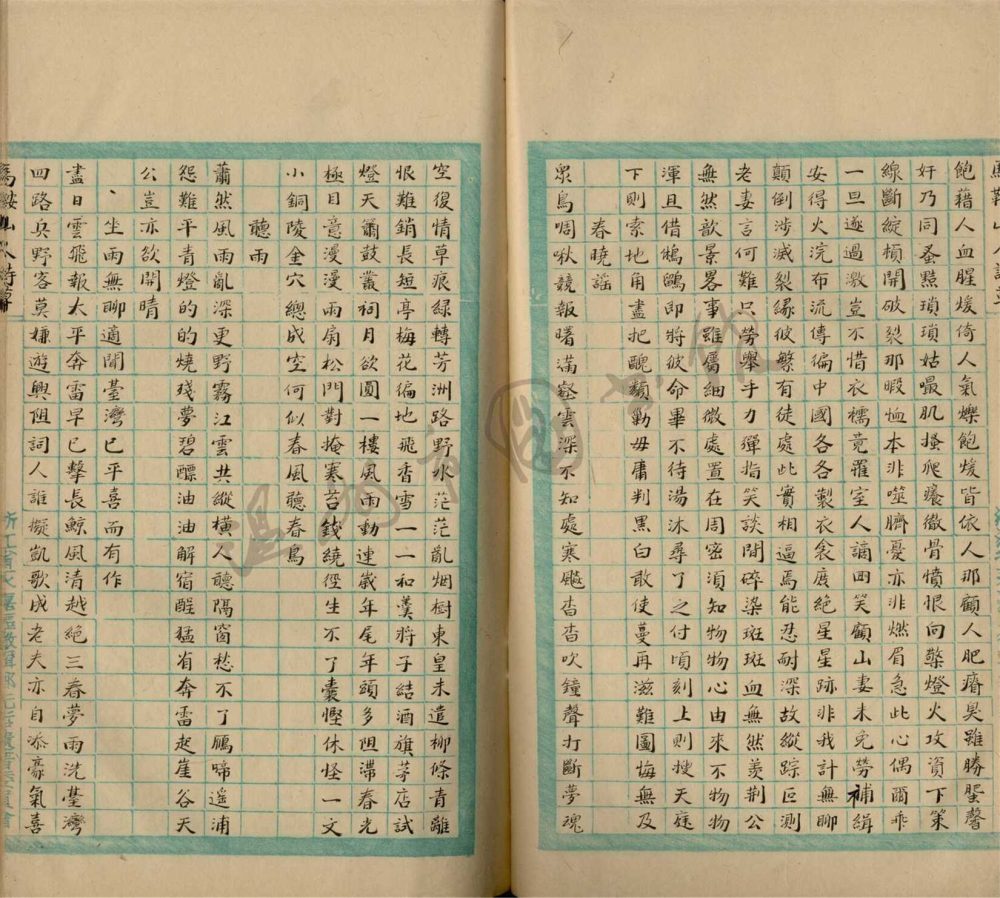 飽藉人血腥煖倚人氣爍飽煖皆依人那顧人肥瘠臭雖勝蜰馨
奸乃同蚤黠瑣瑣姑嘬肌搔爬癢徹骨憤恨向檠燈火攻資下策
線斷綻襀開破裂那暇恤本非噬臍憂亦非燃眉急此心偶爾乖
一旦遂過激豈不惜衣襦竟罹室人謫回笑顧山妻未免勞補緝
安得火浣布流傳徧中國各各製衣衾度絕星星跡非我計無聊
顛倒涉滅裂緣彼繁有徒處此實相逼焉能忍耐深故縱踪叵測
老妻言何難只勞舉手力彈指笑談間碎染斑斑血無然羨荆公
無然歆景畧事雖屬細微處置在周密須知物物心由來不物物
渾且借鵂鶹即將彼命畢不待湯沐尋了之付頃刻上則搜天庭
下則索地角盡把醜類勦毋庸判黑白敢使蔓再滋難圖悔無及
春曉謡
衆鳥啁啾競報曙滿壑雲深不知處寒飈杳杳吹鐘聲打斷夢魂
空復情草痕綠轉芳洲路野水茫茫亂烟樹東皇未遣柳條青離
恨難銷長短亭梅花徧地飛香雪一一和羹將子結酒旗茅店試
燈天簫鼓叢祠月欲圓一樓風雨動連歲年尾年頭多阻滯春光
極目意漫漫雨扃松門對掩寒苔錢繞徑生不了囊慳休怪一文
小銅陵金穴總成空何似春風聽春鳥
聽雨
蕭然風雨亂深更野霧江雲共縱橫人聽隔窗愁不了鴈啼遥浦
怨難平青燈的的燒殘夢碧醥油油解宿酲猛省奔雷起崖谷天
公豈亦欲開晴
坐雨無聊適聞臺灣已平喜而有作
盡日雲飛報太平奔雷早已擊長鯨風清越絕三春夢雨洗臺灣
四路兵野客莫嫌遊興阻詞人誰擬凱歌成老夫亦自添豪氣喜